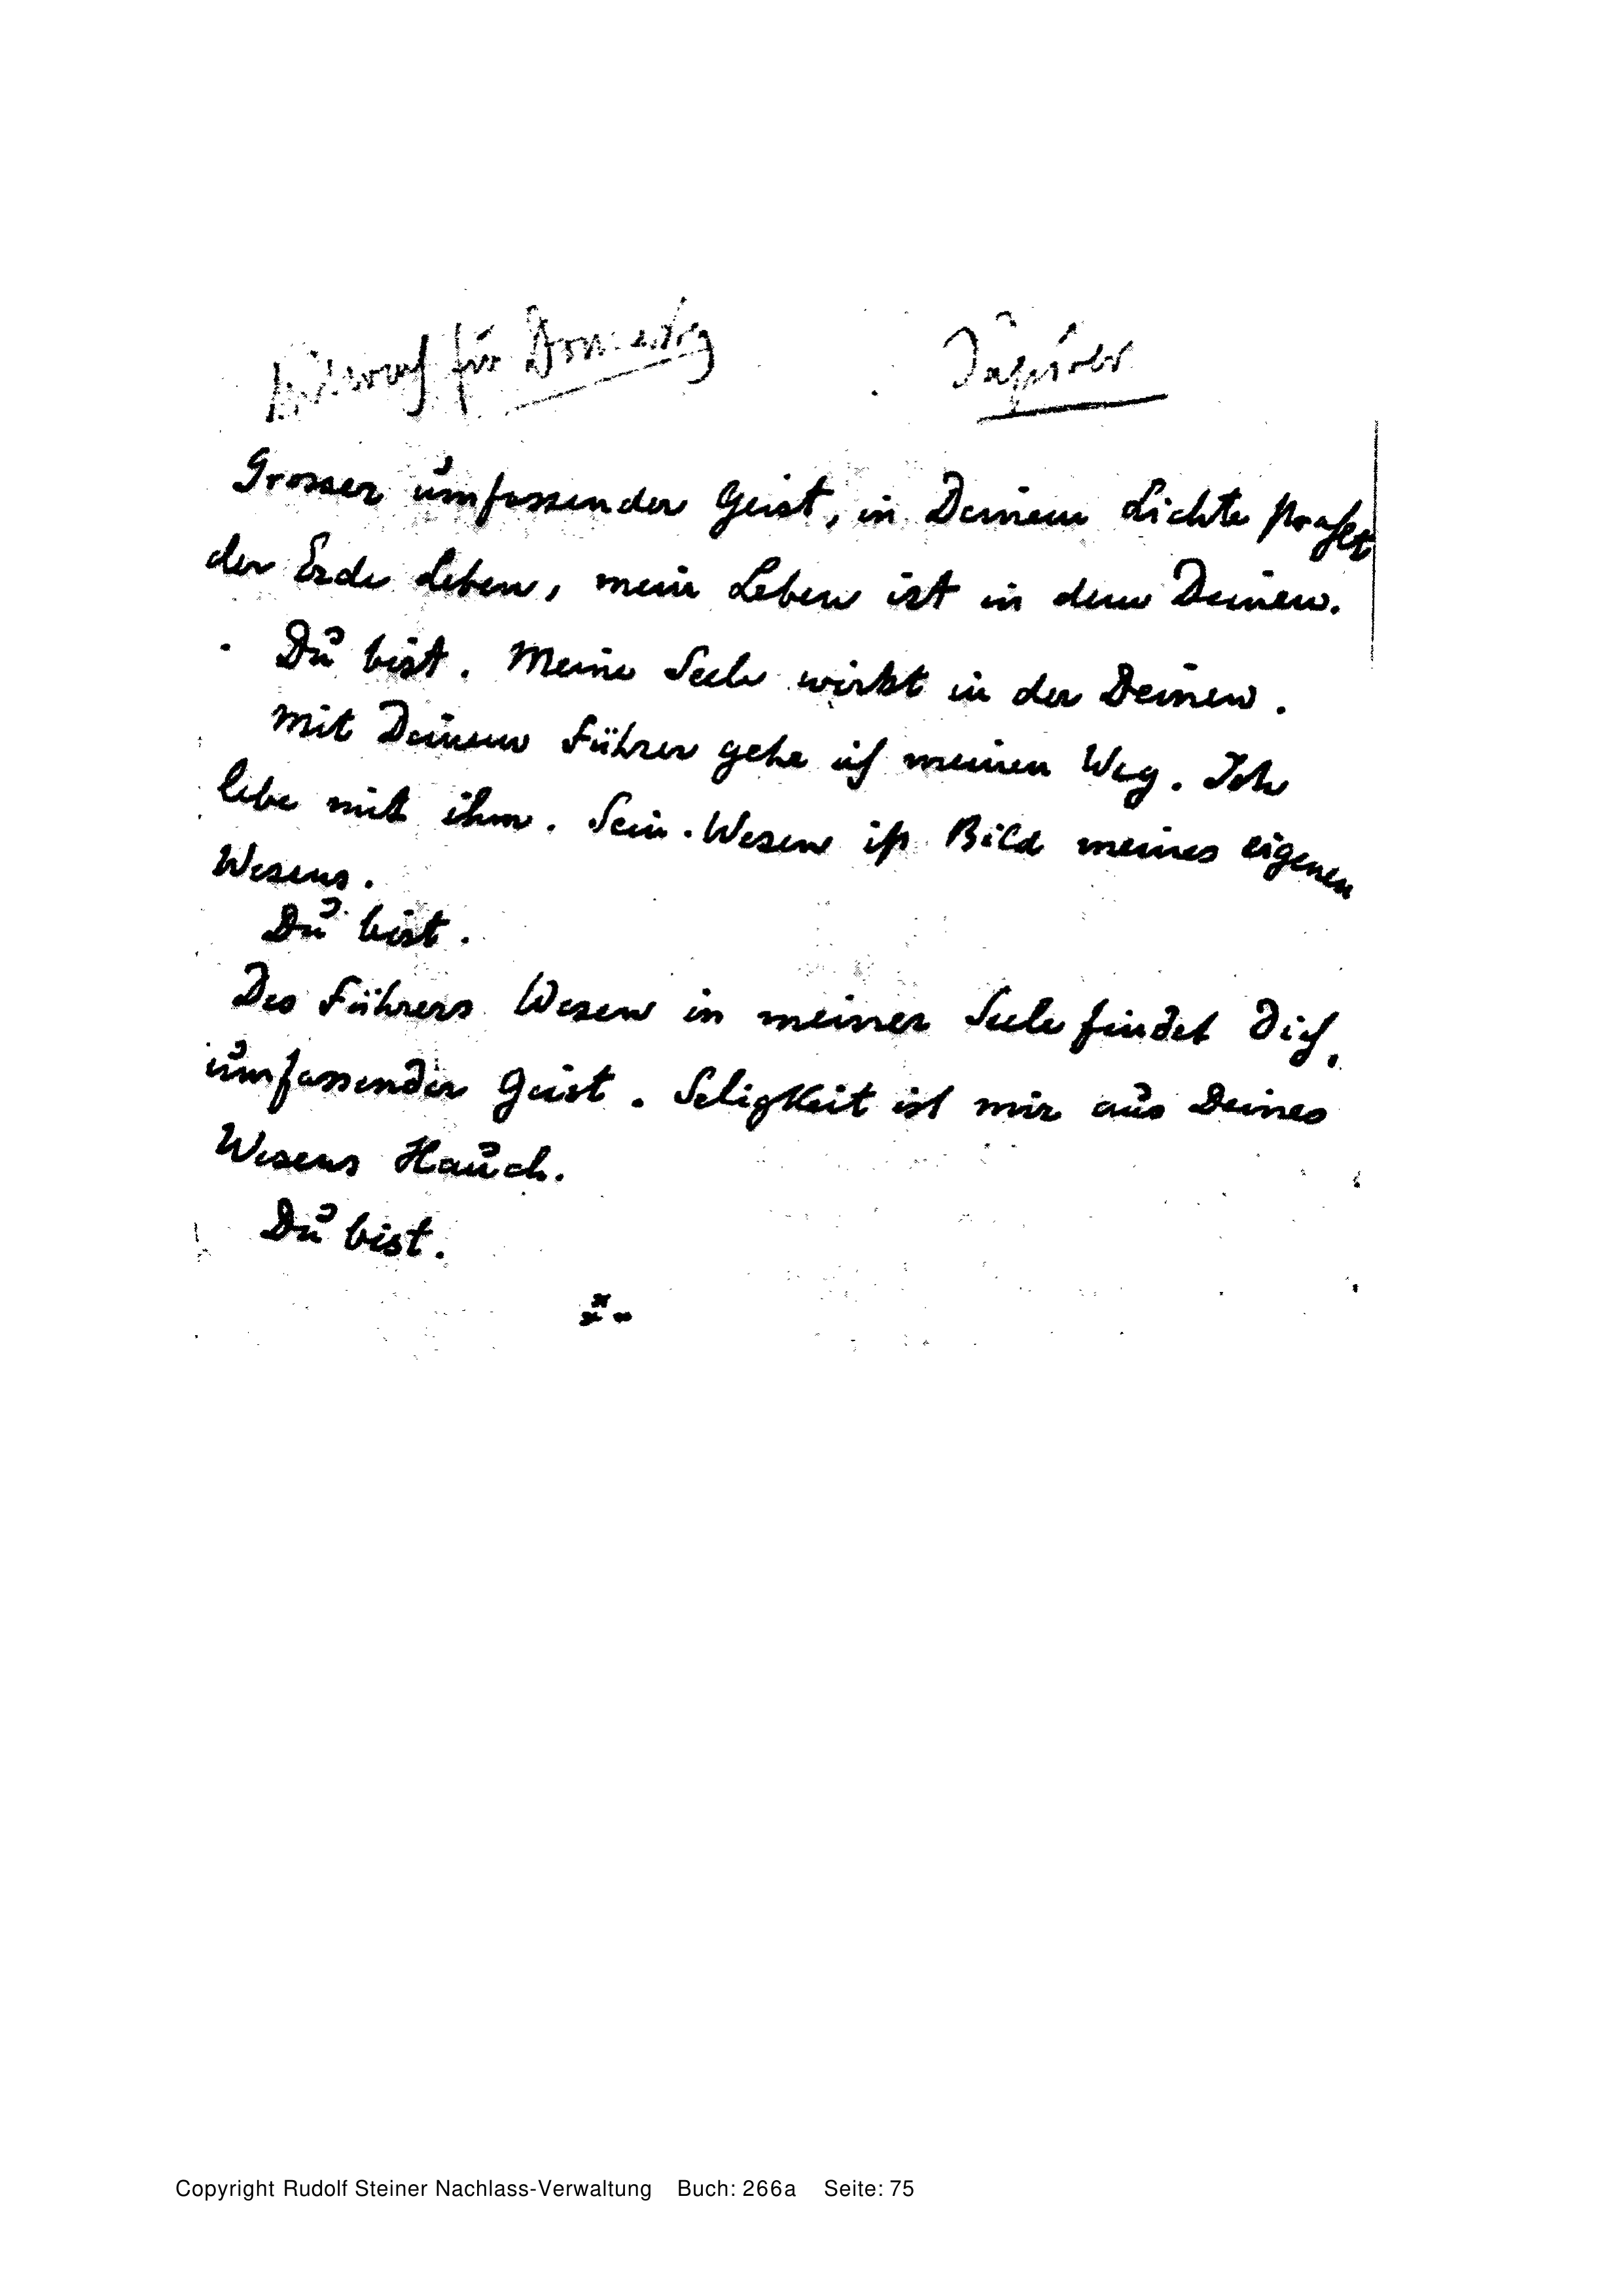 für Donnerstag
Grosser umfassender Geist, in Deinem Lichte strahlt
der Erde Leben, mein Leben ist in dem Deinen.
Du bist. Meine Seele wirkt in der Deinen.
Mit Deinem Führer gehe ich meinen Weg. Ich
lebe mit ihm. Sein Wesen ist Bild meines eigenen
Wesens.
Du bist.
Des Führers Wesen in meiner Seele findet Dich,
umfassender Geist. Seligkeit ist mir aus Deines
Wesens Hauch.
Du bist.
Copyright Rudolf Steiner Nachlass-Verwaltung Buch: 266a Seite: 75